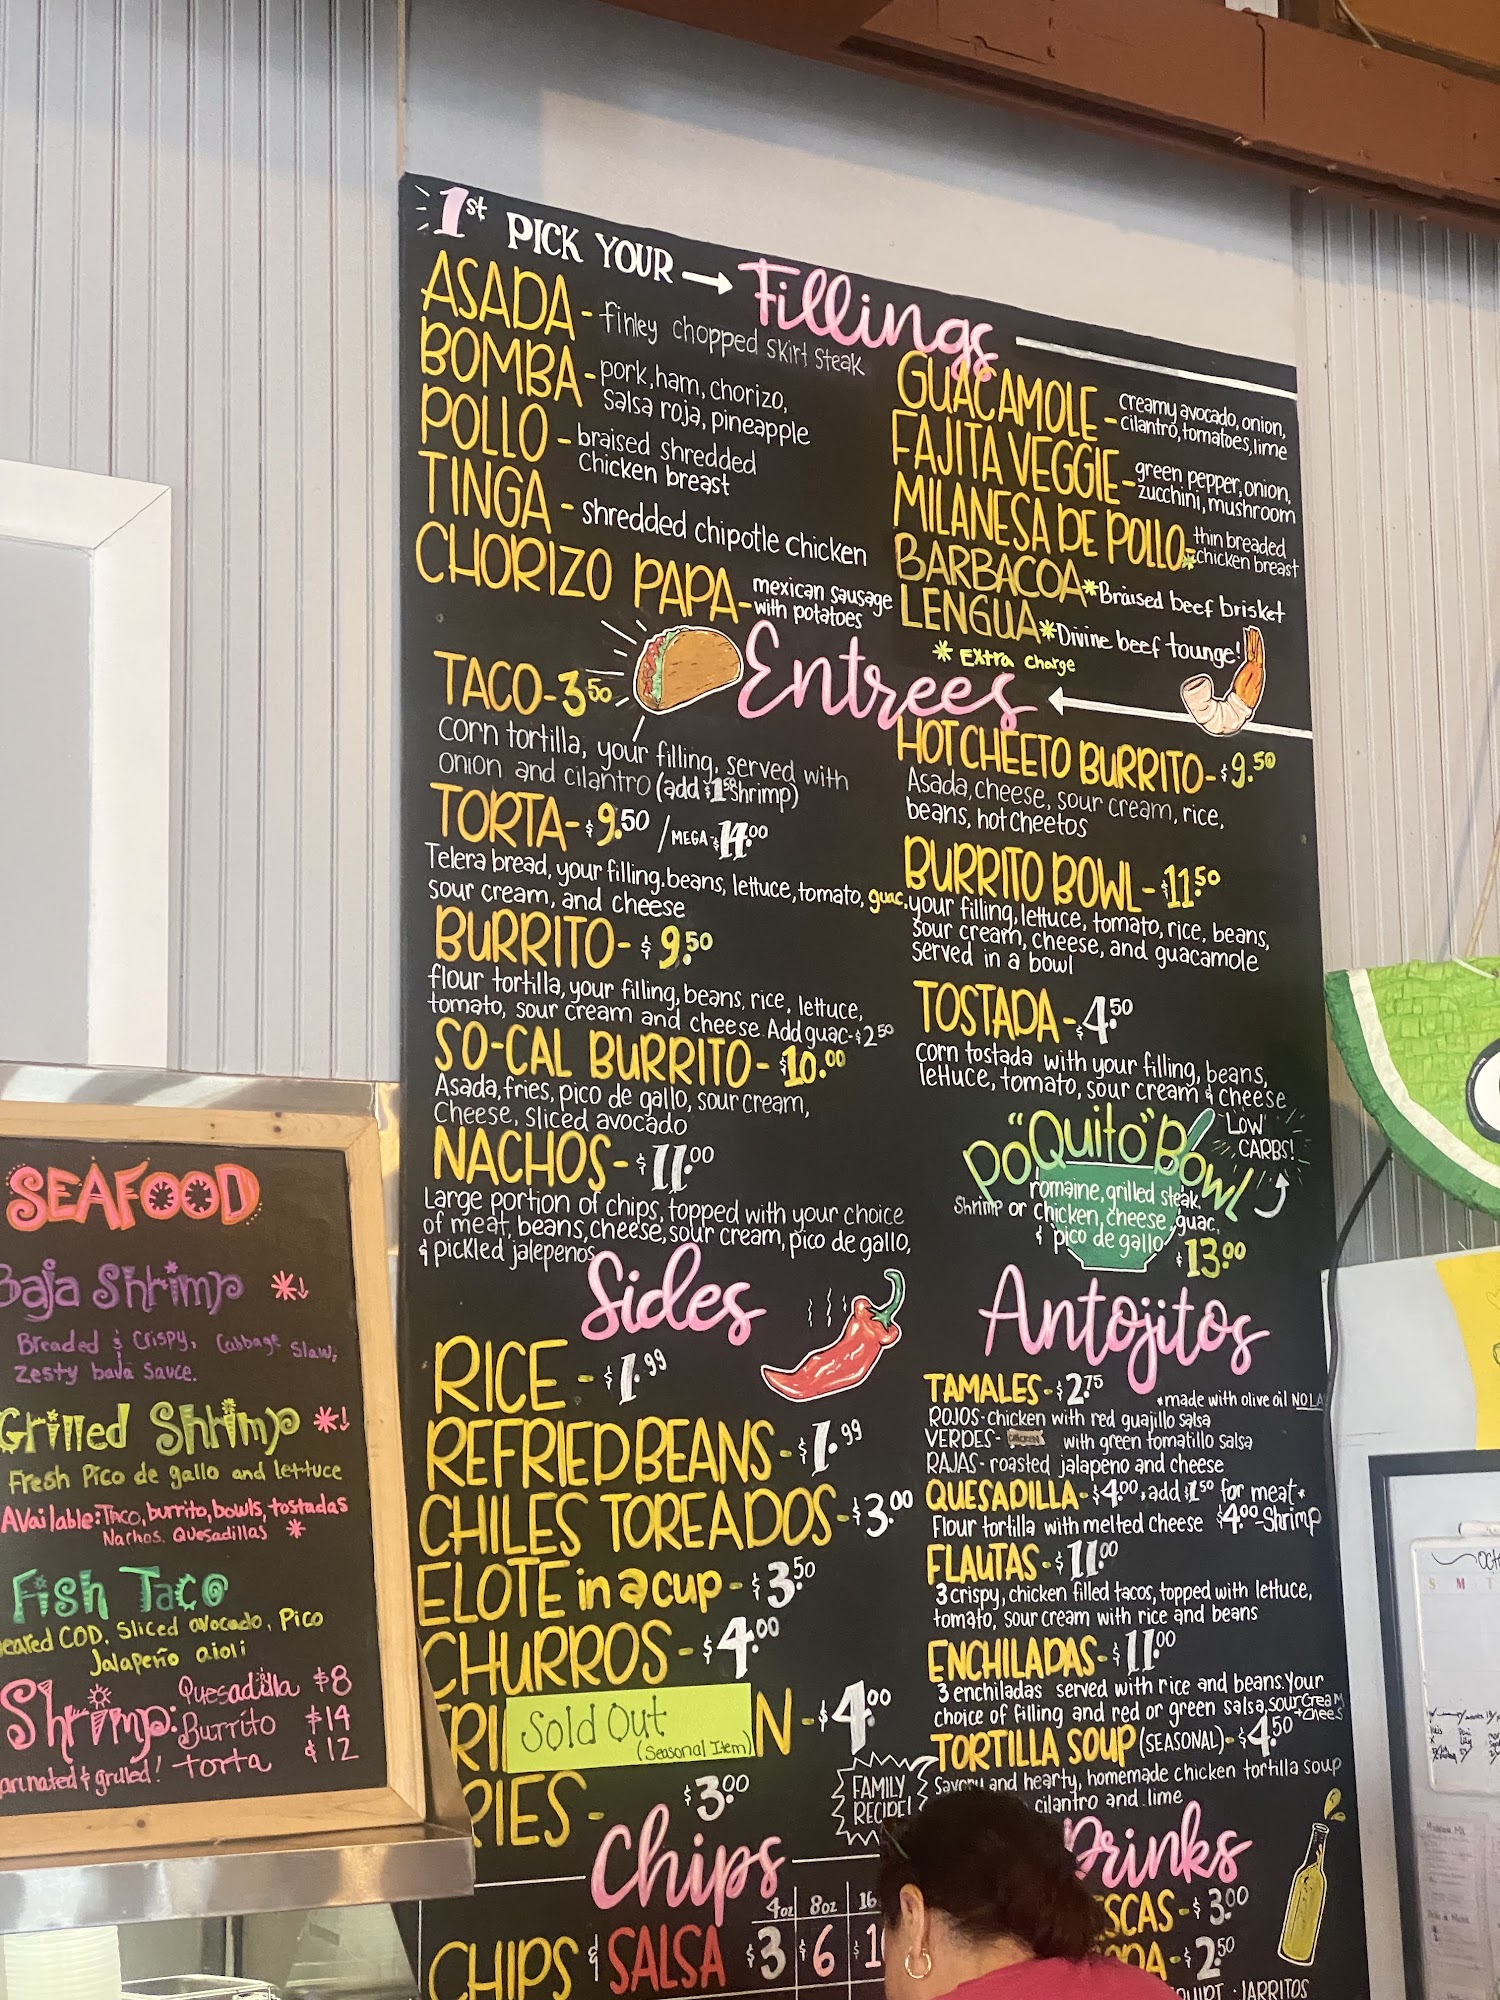 1st PICK YOUR → Fillings
ASADA - finley chopped skirt steak
BOMBA - pork, ham, chorizo,
salsa roja, pineapple
POLLO - braised shredded
chicken breast
TINGA - shredded chipotle chicken
CHORIZO PAPA - mexican sausage
with potatoes
GUACAMOLE - creamy avocado, onion,
cilantro, tomatoes, lime
FAJITA VEGGIE - green pepper, onion,
zucchini, mushroom
MILANESA DE POLLO - thin breaded
*chicken breast
BARBACOA * Braised beef brisket
LENGUA * Divine beef tounge!
* Extra charge
Entrees
TACO - 3.50
corn tortilla, your filling, served with
onion and cilantro (add $1.50 shrimp)
TORTA - $9.50 / MEGA - $14.00
Telera bread, your filling, beans, lettuce, tomato, guac,
sour cream, and cheese
BURRITO - $9.50
flour tortilla, your filling, beans, rice, lettuce,
tomato, sour cream and cheese Add guac - $2.50
SO-CAL BURRITO - $10.00
Asada, fries, pico de gallo, sour cream,
Cheese, sliced avocado
NACHOS - $11.00
Large portion of chips, topped with your choice
of meat, beans, cheese, sour cream, pico de gallo,
& pickled jalepenos
HOT CHEETO BURRITO - $9.50
Asada, cheese, sour cream, rice,
beans, hot cheetos
BURRITO BOWL - $11.50
your filling, lettuce, tomato, rice, beans,
sour cream, cheese, and guacamole
served in a bowl
TOSTADA - $4.50
corn tostada with your filling, beans,
lettuce, tomato, sour cream & cheese
PO"QUITO" BOWL
LOW
CARBS!
romaine, grilled steak,
Shrimp or chicken, cheese, guac,
& pico de gallo
$13.00
Sides
RICE - $1.99
REFRIED BEANS - $1.99
CHILES TOREADOS - $3.00
ELOTE in a cup - $3.50
CHURROS - $4.00
Sold Out
(Seasonal Item)
N - $4.00
RIES - $3.00
FAMILY
RECIPE!
Chips
4oz 8oz 16
CHIPS & SALSA $3 $6 $1
Antojitos
TAMALES - $2.75
*made with olive oil NO LA
ROJOS - chicken with red guajillo salsa
VERDES - with green tomatillo salsa
RAJAS - roasted jalapeno and cheese
QUESADILLA - $4.00, add $1.50 for meat *
Flour tortilla with melted cheese $4.00 - Shrimp
FLAUTAS - $11.00
3 crispy, chicken filled tacos, topped with lettuce,
tomato, sour cream with rice and beans
ENCHILADAS - $11.00
3 enchiladas served with rice and beans. Your
choice of filling and red or green salsa, sour Cream
+ Chees
TORTILLA SOUP (SEASONAL) - $4.50
Savory and hearty, homemade chicken tortilla soup
cilantro and lime
Drinks
SCAS - $3.00
DA - $2.50
JARRITOS
SEAFOOD
Baja Shrimp *↓
Breaded & Crispy, Cabbage Slaw,
Zesty baja Sauce.
Grilled Shrimp *↓
Fresh Pico de gallo and lettuce
Available: Taco, burrito, bowls, tostadas
Nachos, Quesadillas *
Fish Taco
eared COD, Sliced avocado, Pico
Jalapeño aioli
Shrimp: Quesadilla $8
Burrito $14
torta $12
arinated & grilled!